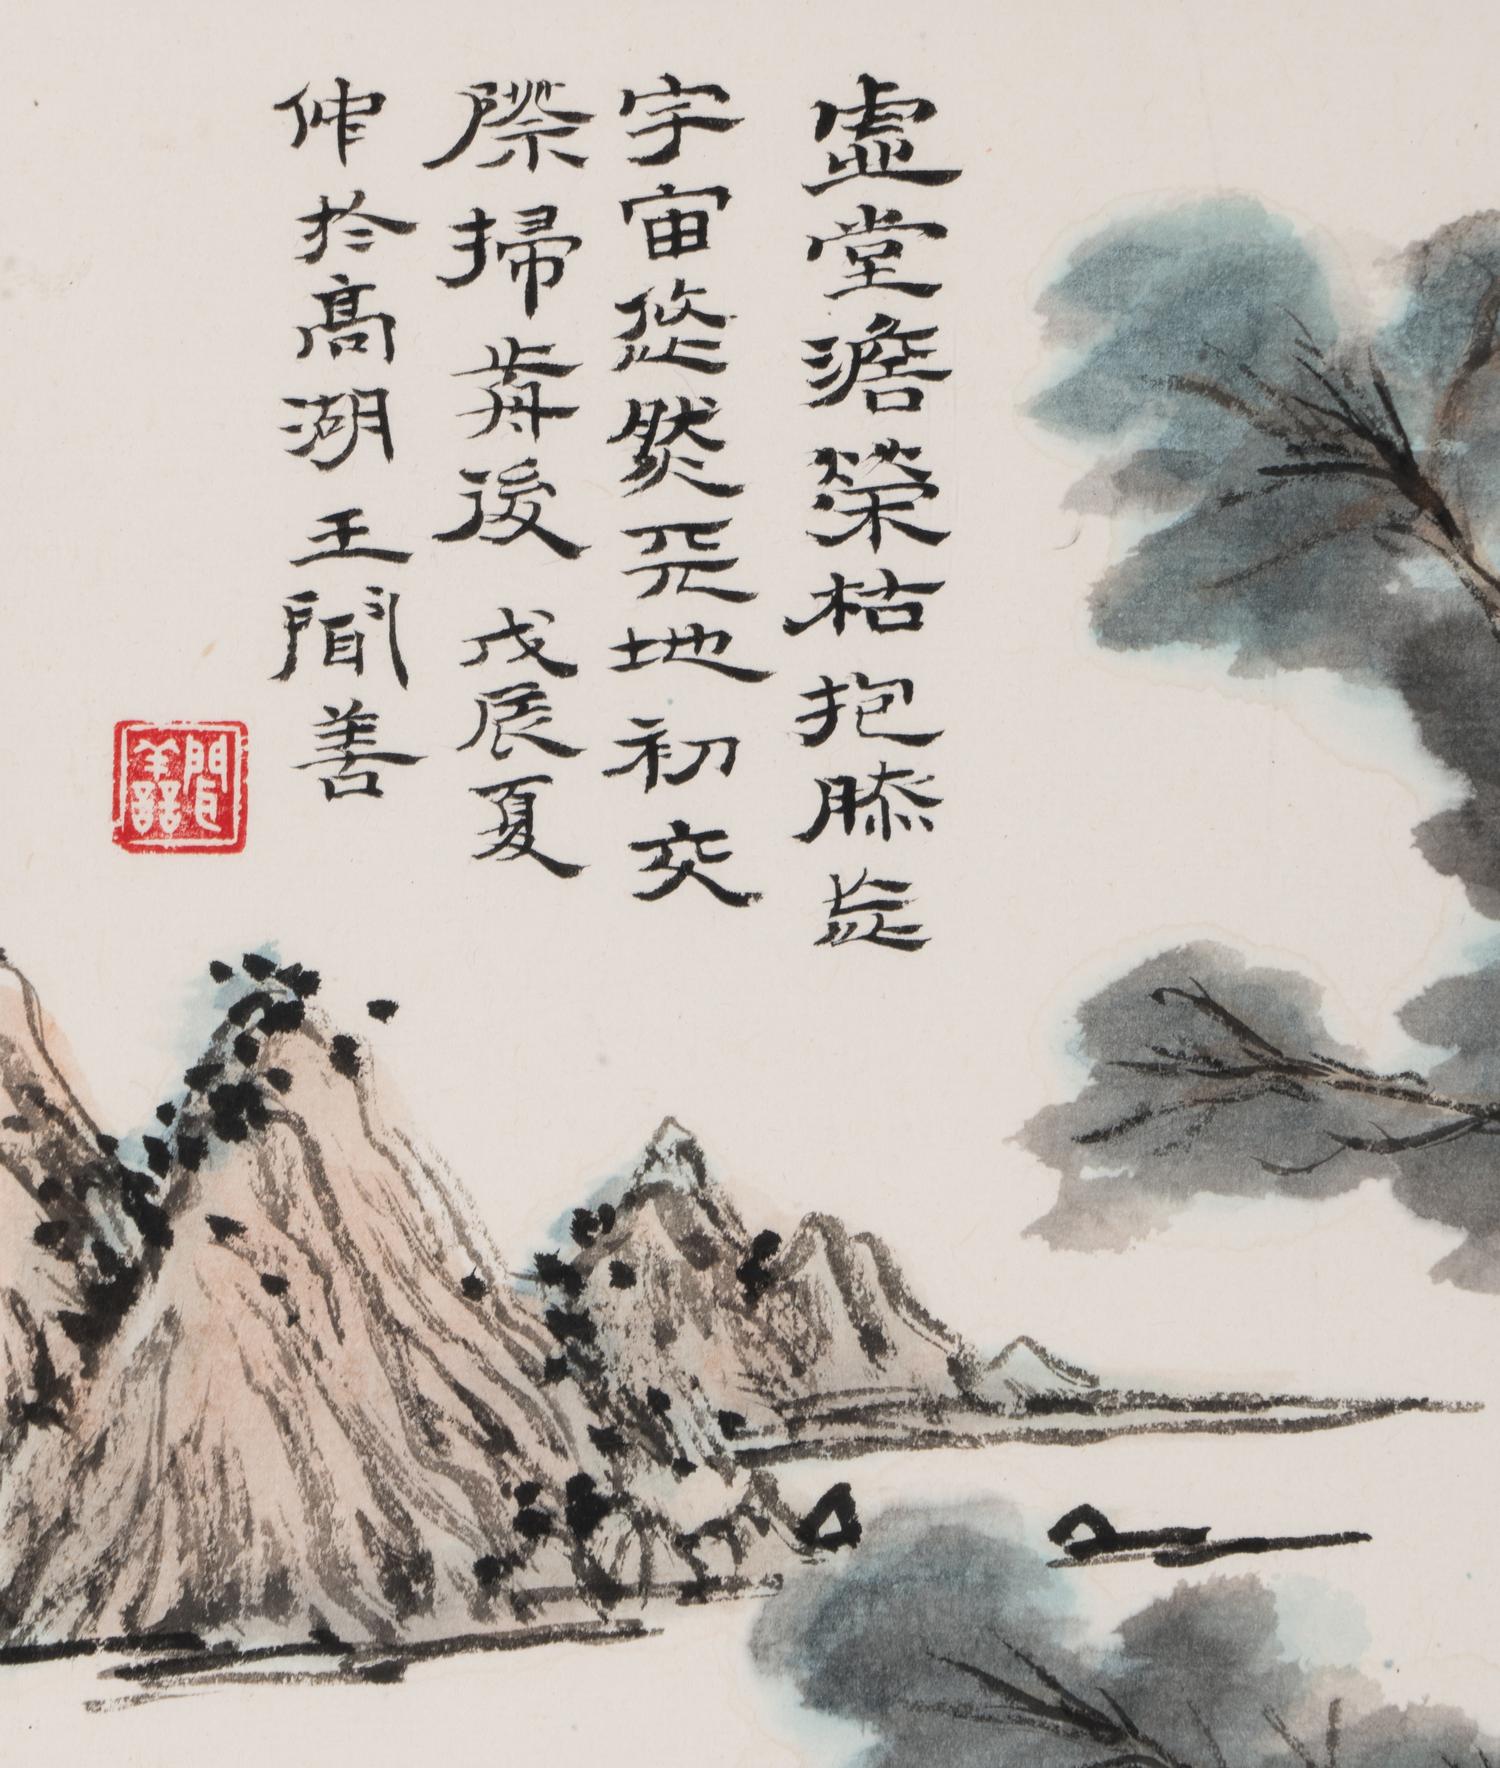 虛堂澹榮枯抱膝
宇宙悠然天地初交
際掃歬後 戊辰夏
作於高湖王聞善
聞譱